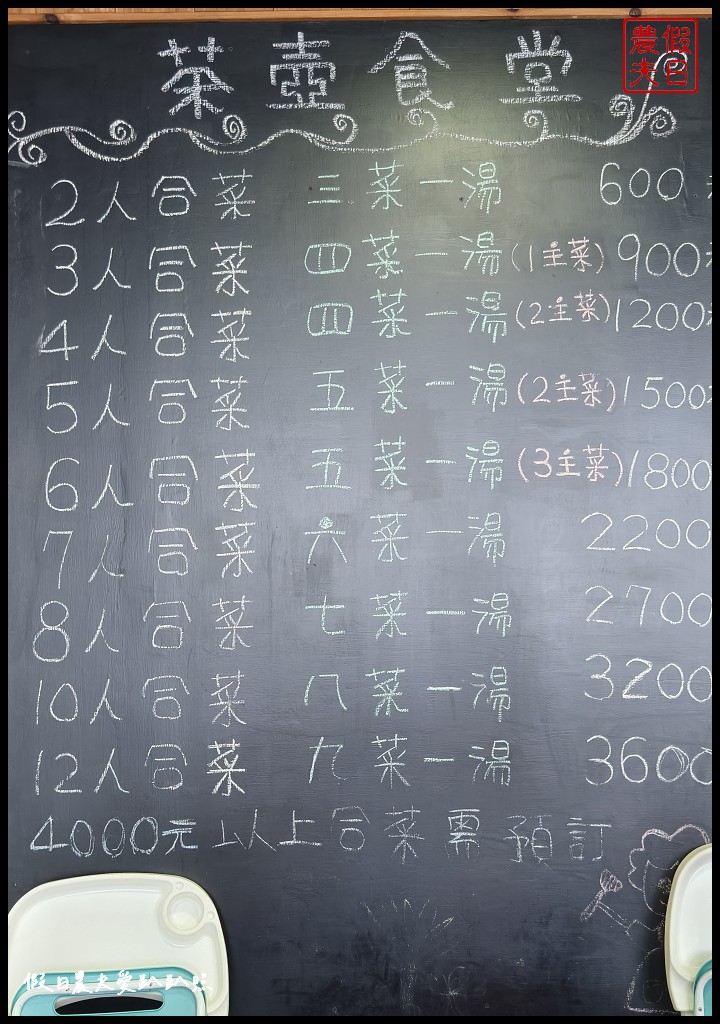 茶壺食堂
假日農夫
2人合菜 三菜一湯 600
3人合菜 四菜一湯(1主菜) 900
4人合菜 四菜一湯(2主菜) 1200
5人合菜 五菜一湯(2主菜) 1500
6人合菜 五菜一湯(3主菜) 1800
7人合菜 六菜一湯 2200
8人合菜 七菜一湯 2700
10人合菜 八菜一湯 3200
12人合菜 九菜一湯 3600
4000元以上合菜需預訂
假日農夫愛趴趴照